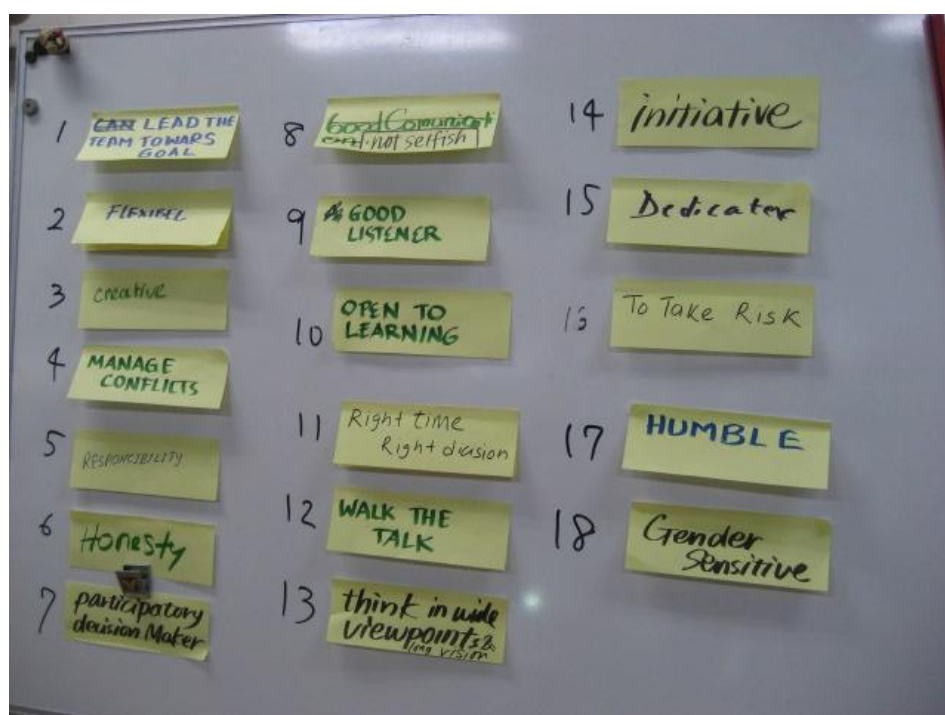 1
CAN LEAD THE
TEAM TOWARS
GOAL
2
FLEXIBEL
3
creative
4
MANAGE
CONFLICTS
5
RESPONCIBILITY
6
Honesty
7
participatory
decision Maker
8
Good Comunicati
and not selfish
9
GOOD
LISTENER
10
OPEN TO
LEARNING
11
Right time
Right dicision
12
WALK THE
TALK
13
think in wide
viewpoints &
long vision
14
initiative
15
Dedicater
16
To Take Risk
17
HUMBLE
18
Gender
Sensitive